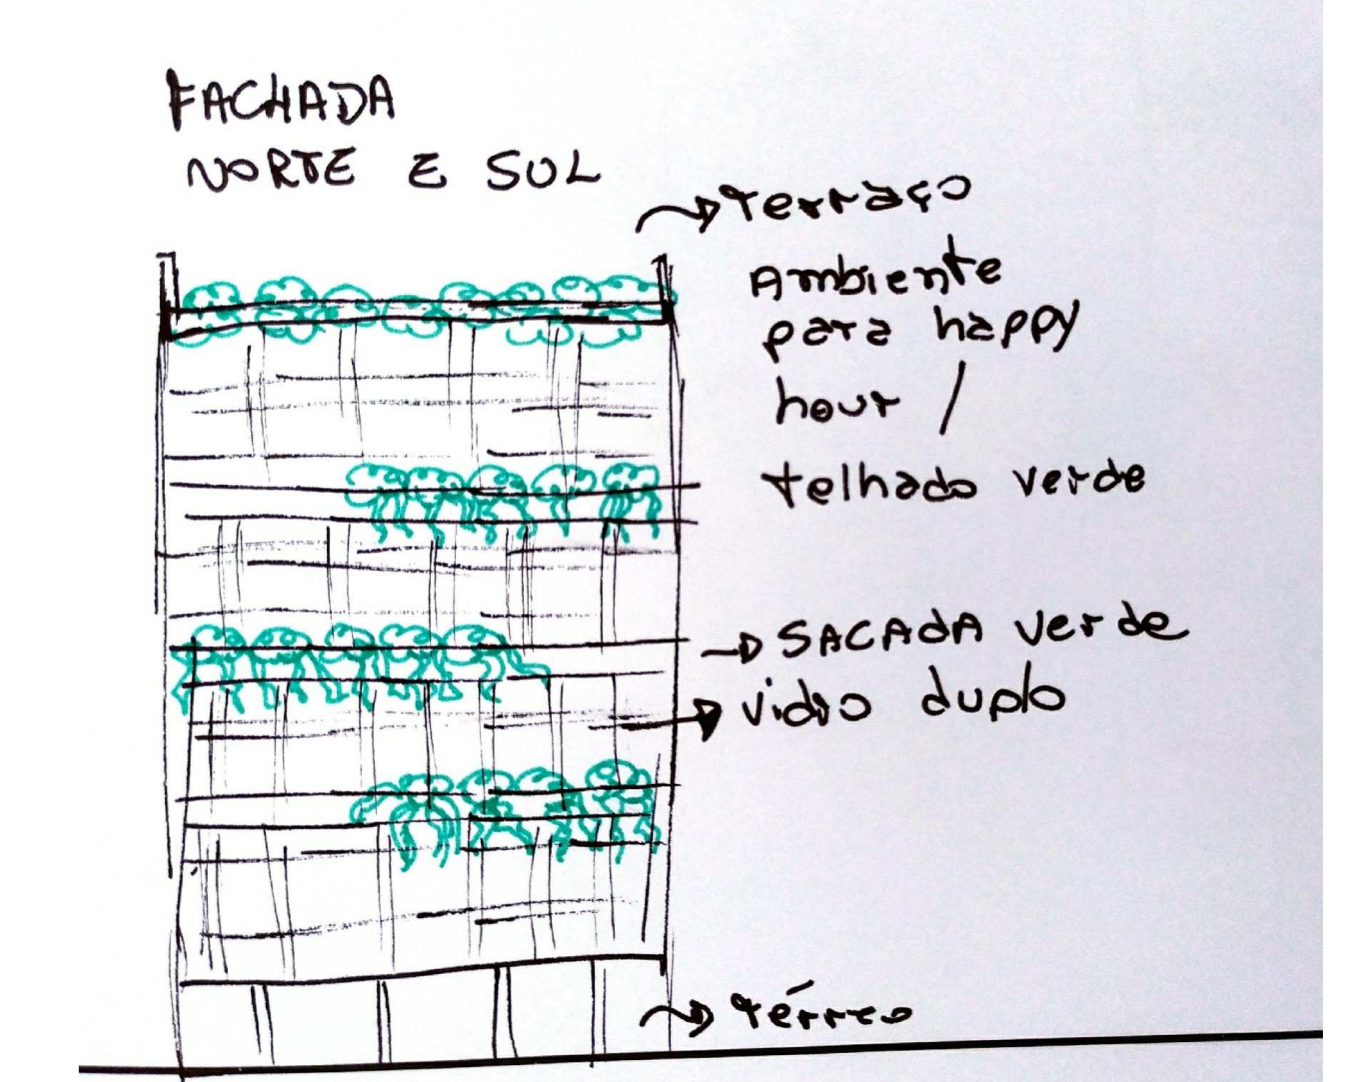 FACHADA
NORTE E SUL
terraço
Ambiente
para happy
hour /
telhado verde
SACADA verde
vidro duplo
térreo